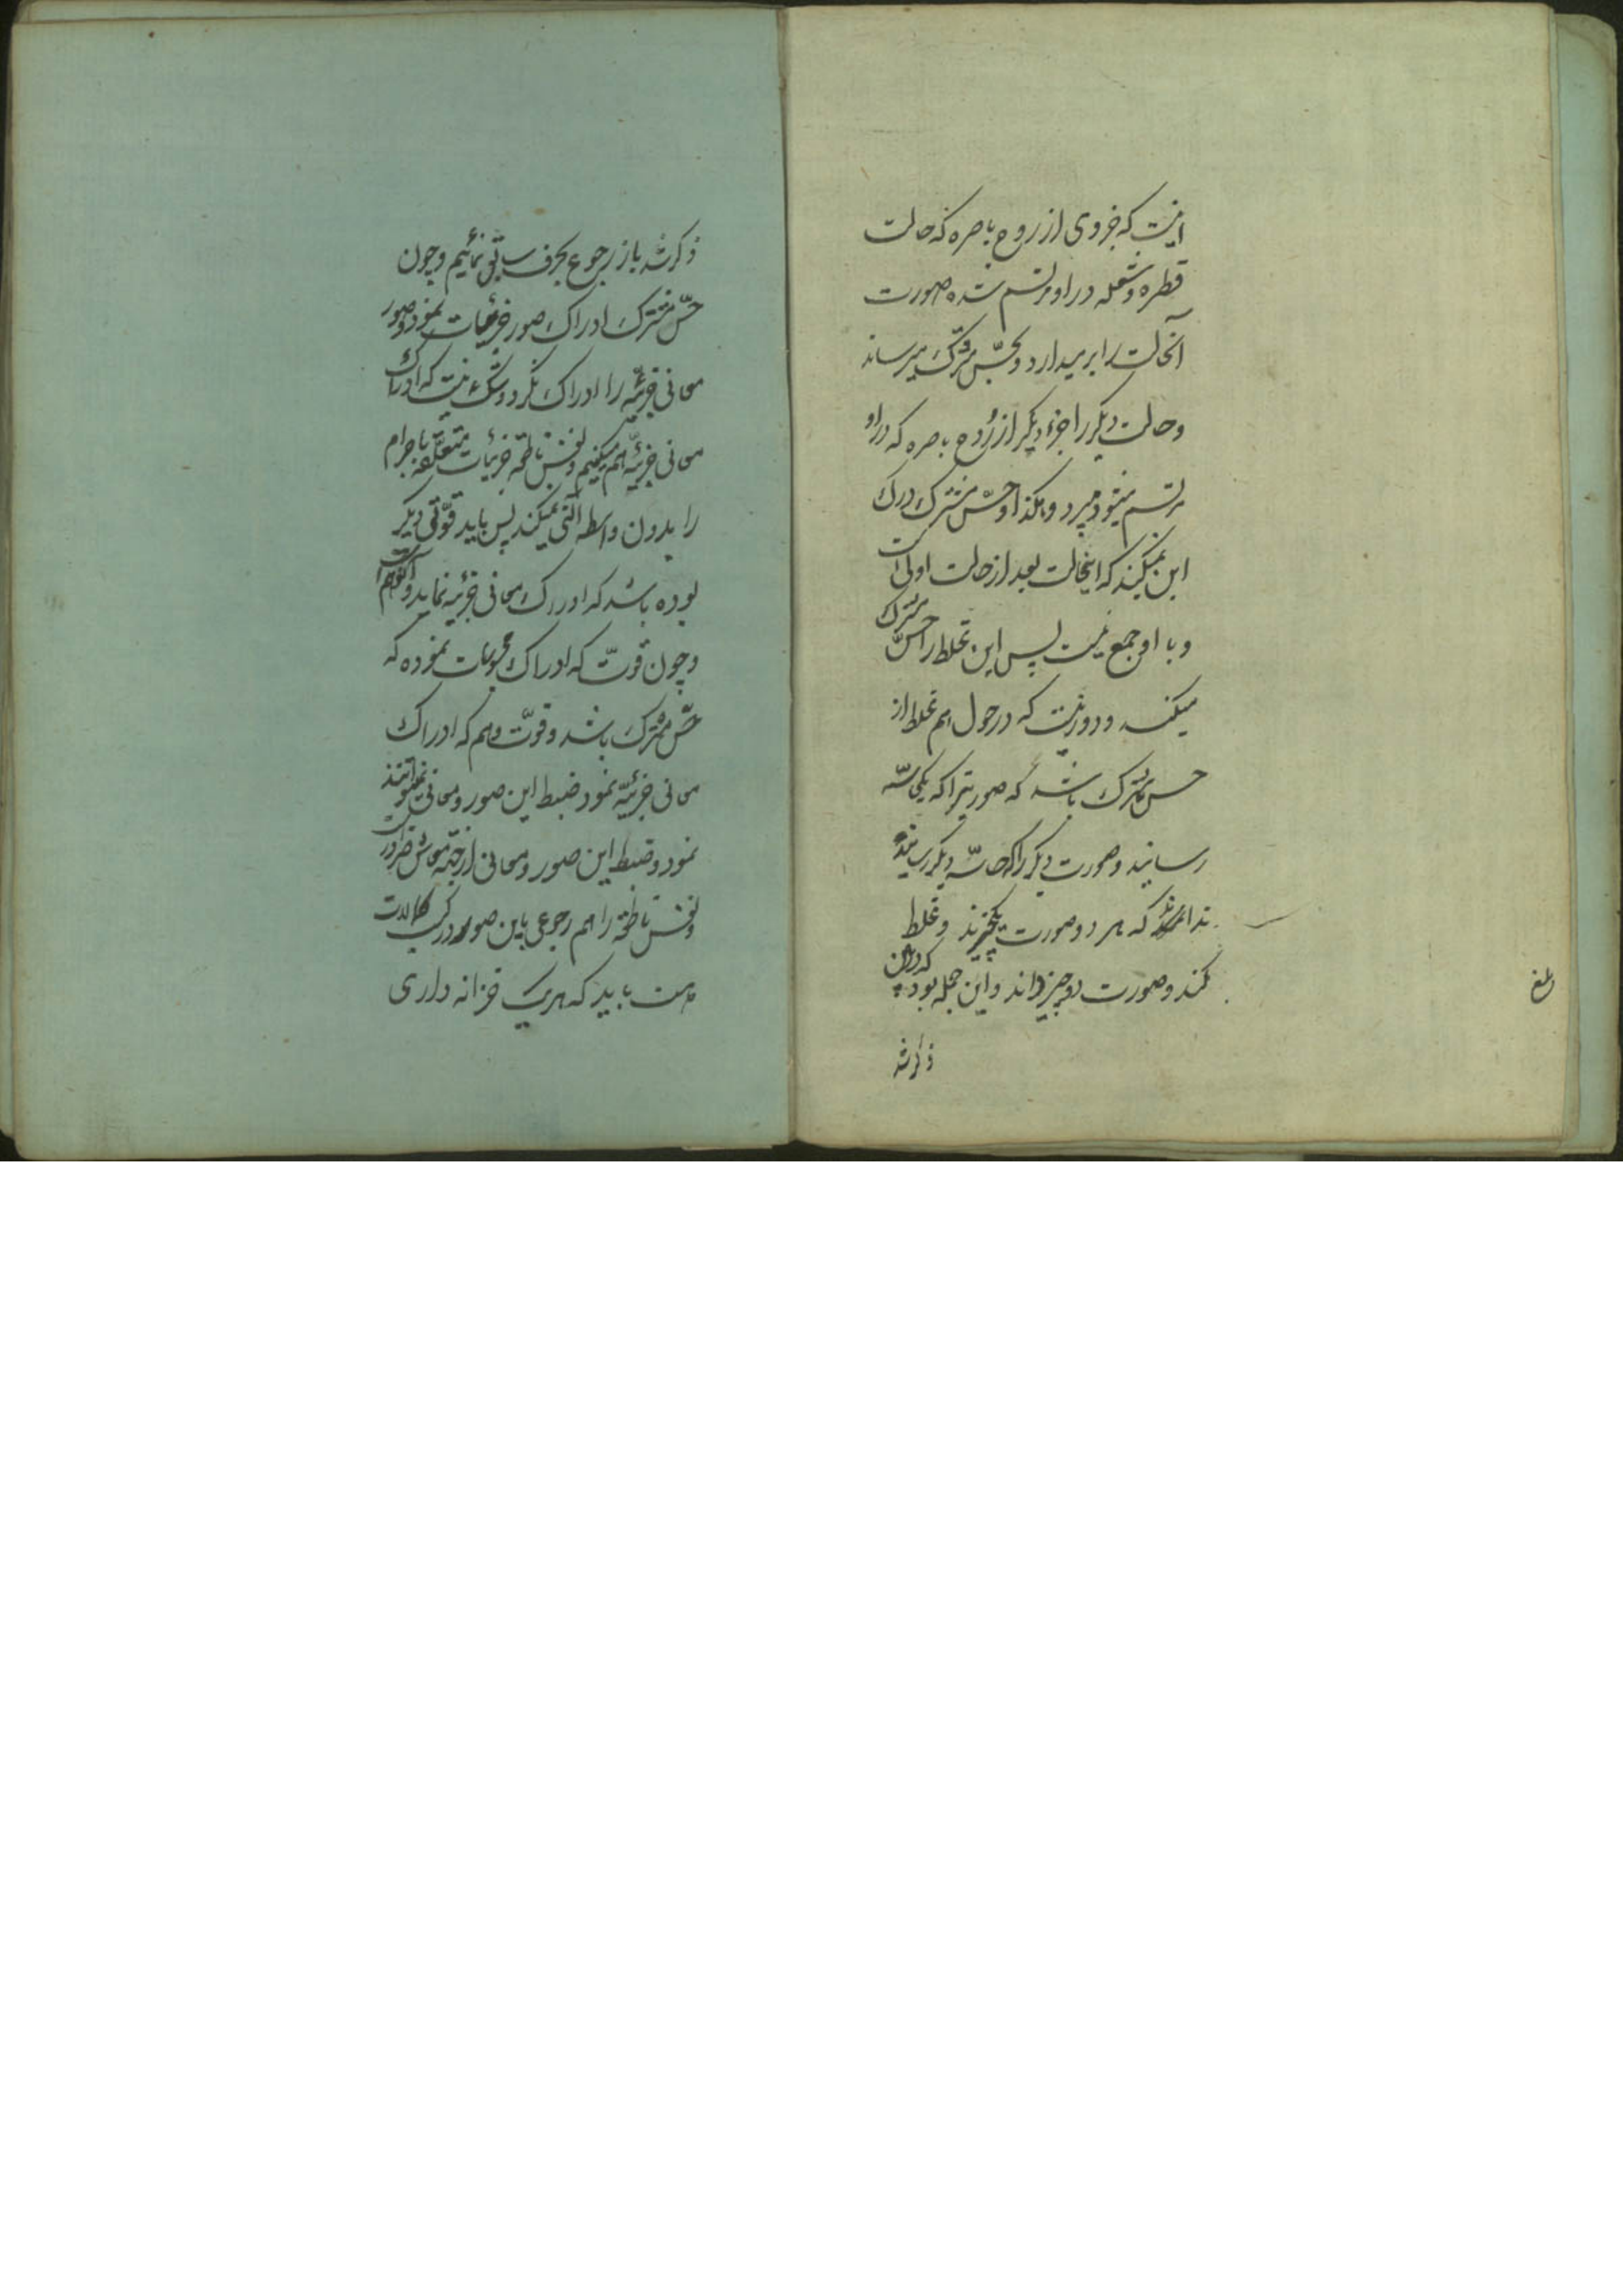 اینست که جزوی از روح باصره که حالت
قطره و شعله در او مرتسم شده صورت
آنحالت را برمیدارد و بحسّ مشترک میرساند
و حالت دیگر را جزء دیگر از رُوح باصره که در او
مرتسم میشود میبرد و هکذا و حسّ مشترک درک
این نمیکند که اینحالت بعد از حالت اولی است
و با او جمع نیست پس این غلط را حسّ مشترک
میکند و دور نیست که در حول هم غلط از
حس مشترک باشد که صورتیرا که یک حاسّه
رسانید و صورت دیگر را که حاسّه دیگر رسانیده
نداند که هر دو صورت یکچیزند و غلط
کند و صورت دو چیز داند و این جمله بود که در این
ذکر شد
ذکر شد باز رجوع بحرف سابق نمائیم و چون
حسّ مشترک ادراک صور جزئیات نمود و صور
معانی جزئیّه را ادراک نکرد و شکّی نیست که ادراک
معانی جزئیّه هم میکنیم و نفس ناطقه جزئیات متعلّقه باجرام
را بدون واسطه آلتی نمیکند پس باید قوّتی دیگر
بوده باشد که ادراک معانی جزئیه نماید و
و چون قوّت که ادراک محسوسات نموده که
حسّ مشترک باشد و قوّت وهم که ادراک
معانی جزئیّه نمود ضبط این صور و معانی نمیتوانند
نمود و ضبط این صور و معانی از جهة معاش ضرور است
و نفس ناطقه را هم رجوعی باین صور در کسب کمالات
هست باید که هر یک خزانه داری